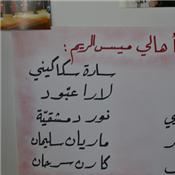 أهالي ميس الريم:
سارة سكاكيني
لارا عبّود
نور دمشقيّة
ماريان سليمان
كارن سرحان